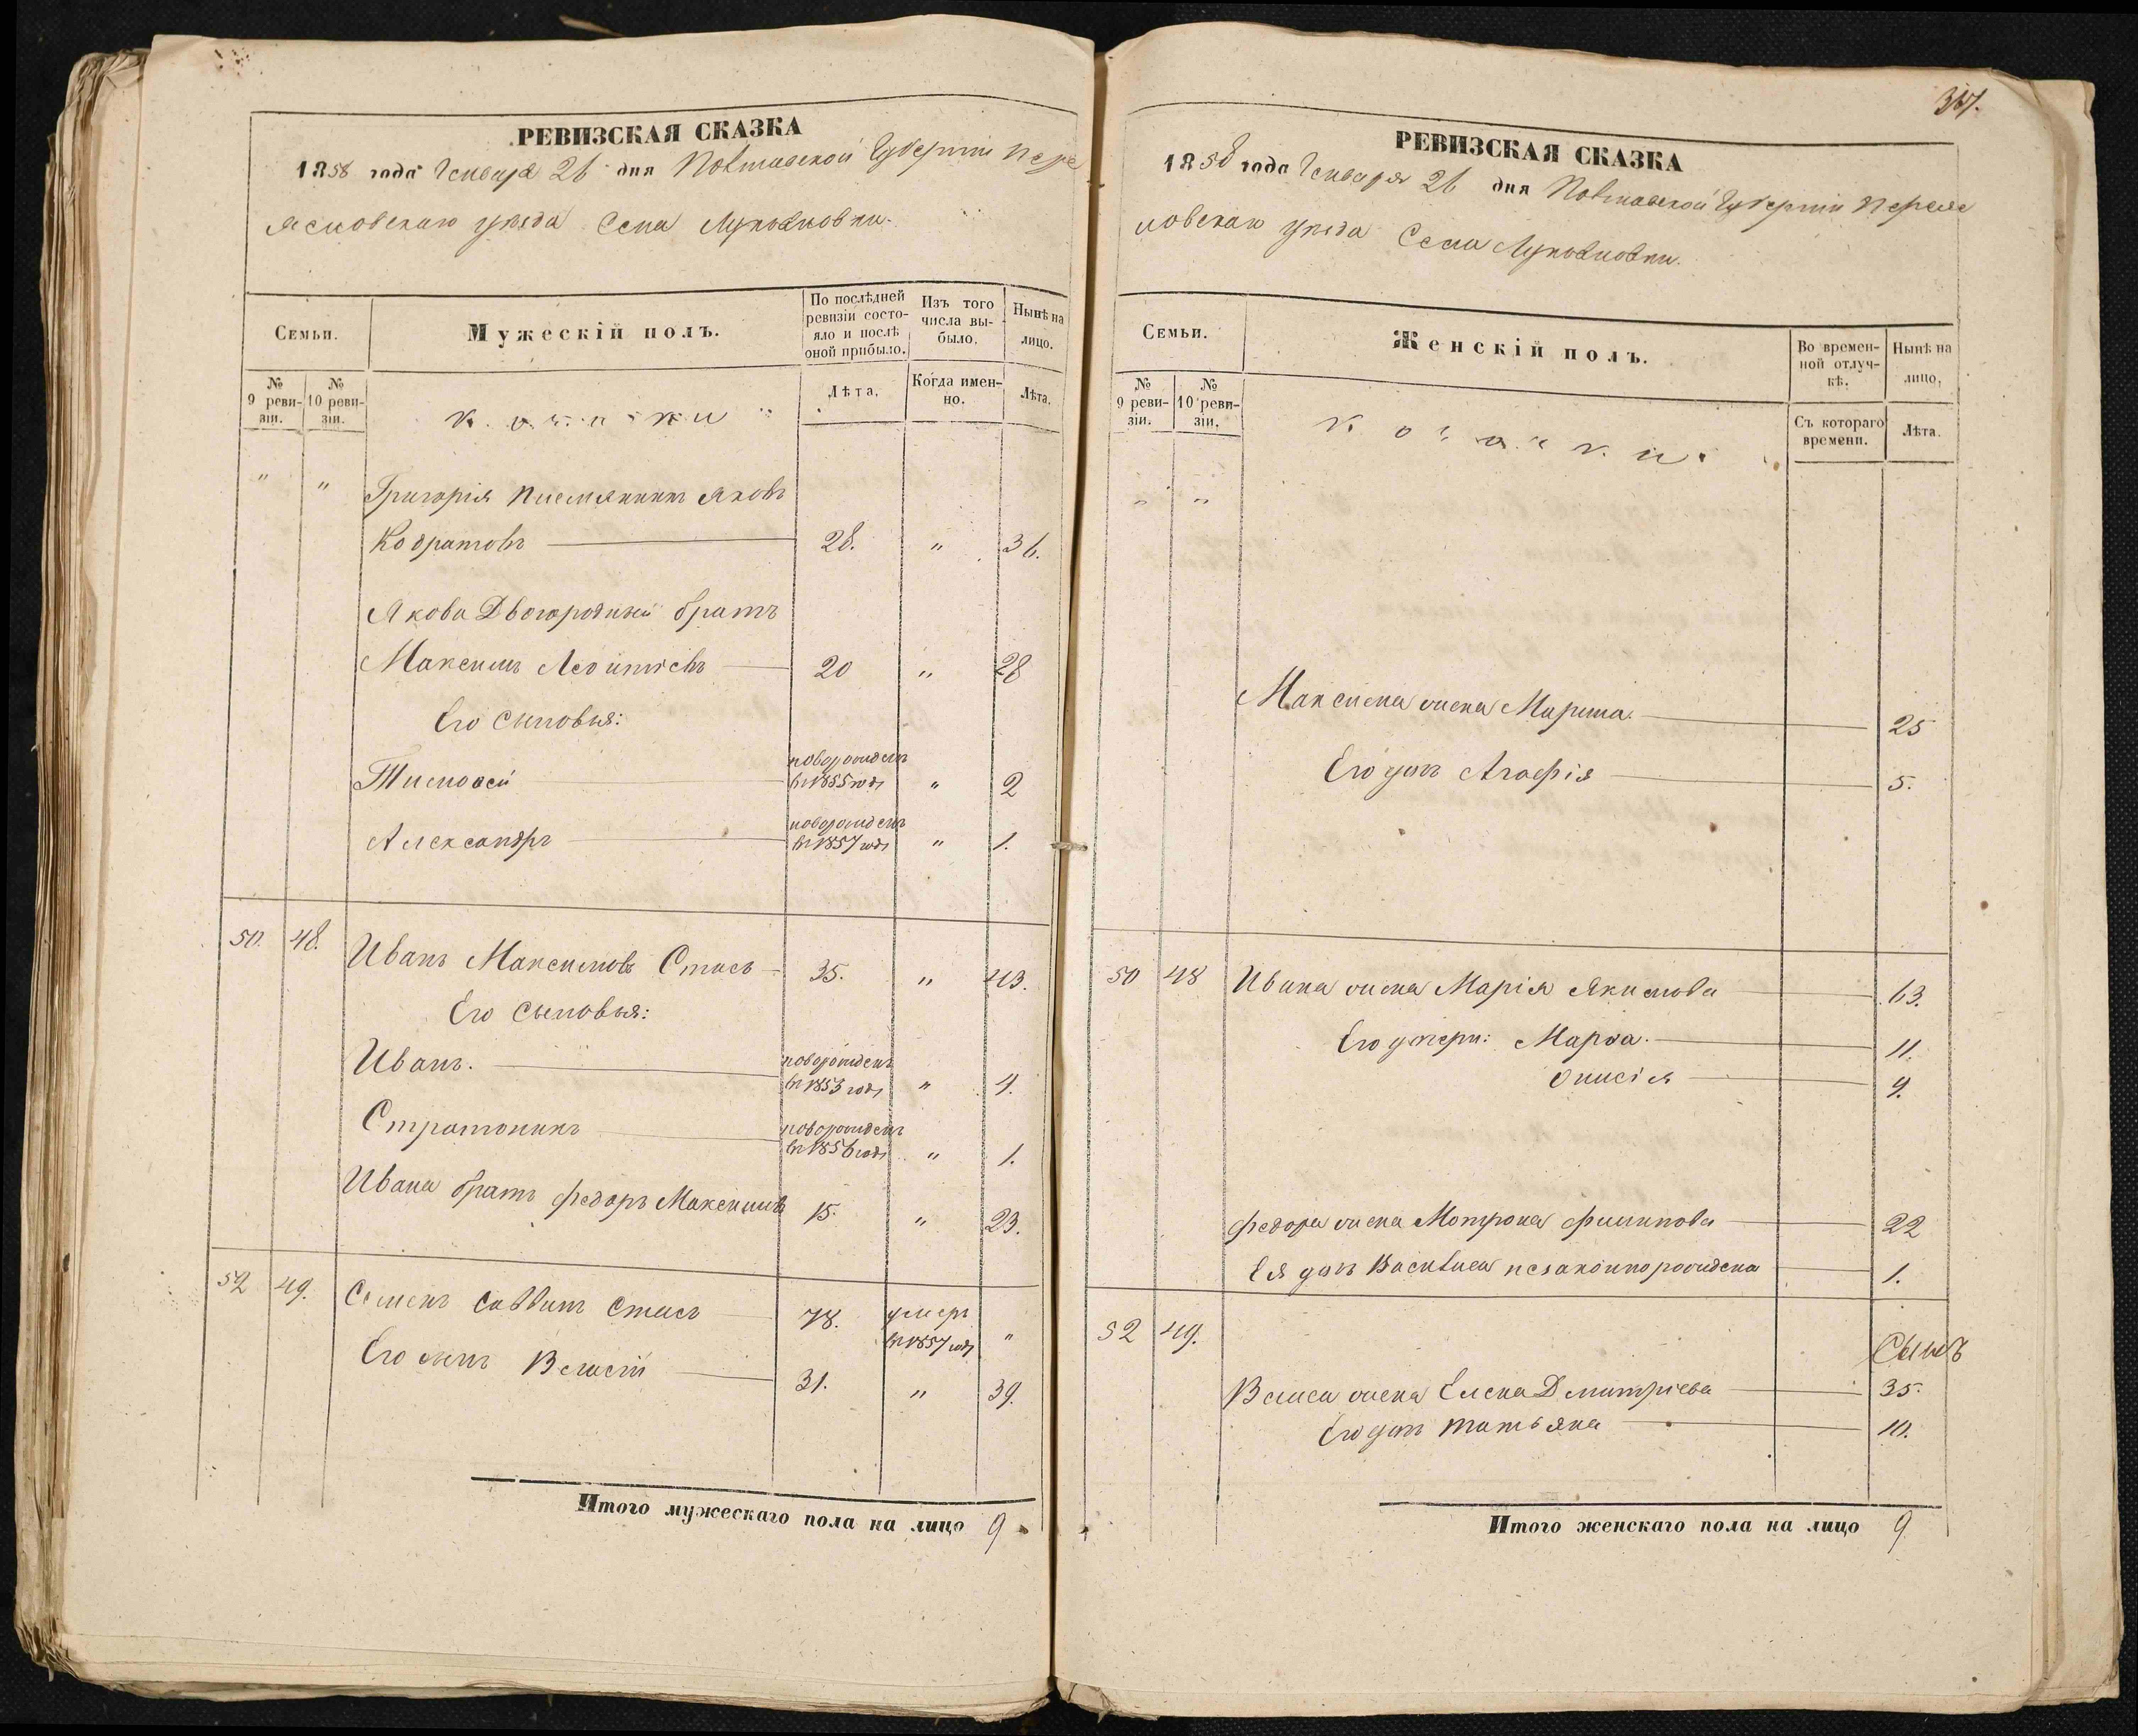 РЕВИЗСКАЯ СКАЗКА
1858 года Генваря 26 дня Полтавской Губернии Пере
яславскаго уѣзда Села Лукьяновки.
Семьи.
Мужескій полъ.
По послѣдней ревизіи состояло и послѣ оной прибыло.
Изъ того числа выбыло.
Нынѣ на лицо.
№ 9 ревизіи.
№ 10 ревизіи.
Козаки
Лѣта.
Когда именно.
Лѣта.
" " Григорія племянникъ Яковъ
Кодратовъ 28. " 36.
Якова Двоюродный братъ
Максимъ Леонтіевъ 20 " 28
Его сыновья:
Тимофей новорожденъ въ 1855 годѣ " 2
Александръ новорожденъ въ 1857 годѣ " 1.
50. 48. Иванъ Максимовъ Стась 35. " 43.
Его сыновья:
Иванъ. новорожденъ въ 1853 годѣ " 4.
Стратоникъ новорожденъ въ 1856 годѣ " 1.
Ивана братъ Федоръ Максимовъ 15. " 23.
52 49. Семенъ Саввинъ Стась 78. умеръ въ 1857 годѣ "
Его сынъ Власій 31. " 39.
Итого мужескаго пола на лицо 9
РЕВИЗСКАЯ СКАЗКА
1858 года Генваря 26 дня Полтавской Губерніи Переяс
ловскаго уѣзда Села Лукьяновки.
Семьи.
Женскій полъ.
Во временной отлучкѣ.
Нынѣ на лицо.
№ 9 ревизіи.
№ 10 ревизіи.
Козачки.
Съ котораго времени.
Лѣта.
" "
Максима жена Марина. 25
Его дочь Агафія 5.
50 48 Ивана жена Марія Якимова 63.
Его дочери: Марфа. 11.
Онисія 9.
Федора жена Мотрона Филипова 22
Ея дочь Василиса незаконнорождена 1.
52 49.
Власа жена Елена Дмитріева 35.
Его дочь Татьяна 10.
Итого женскаго пола на лицо 9.